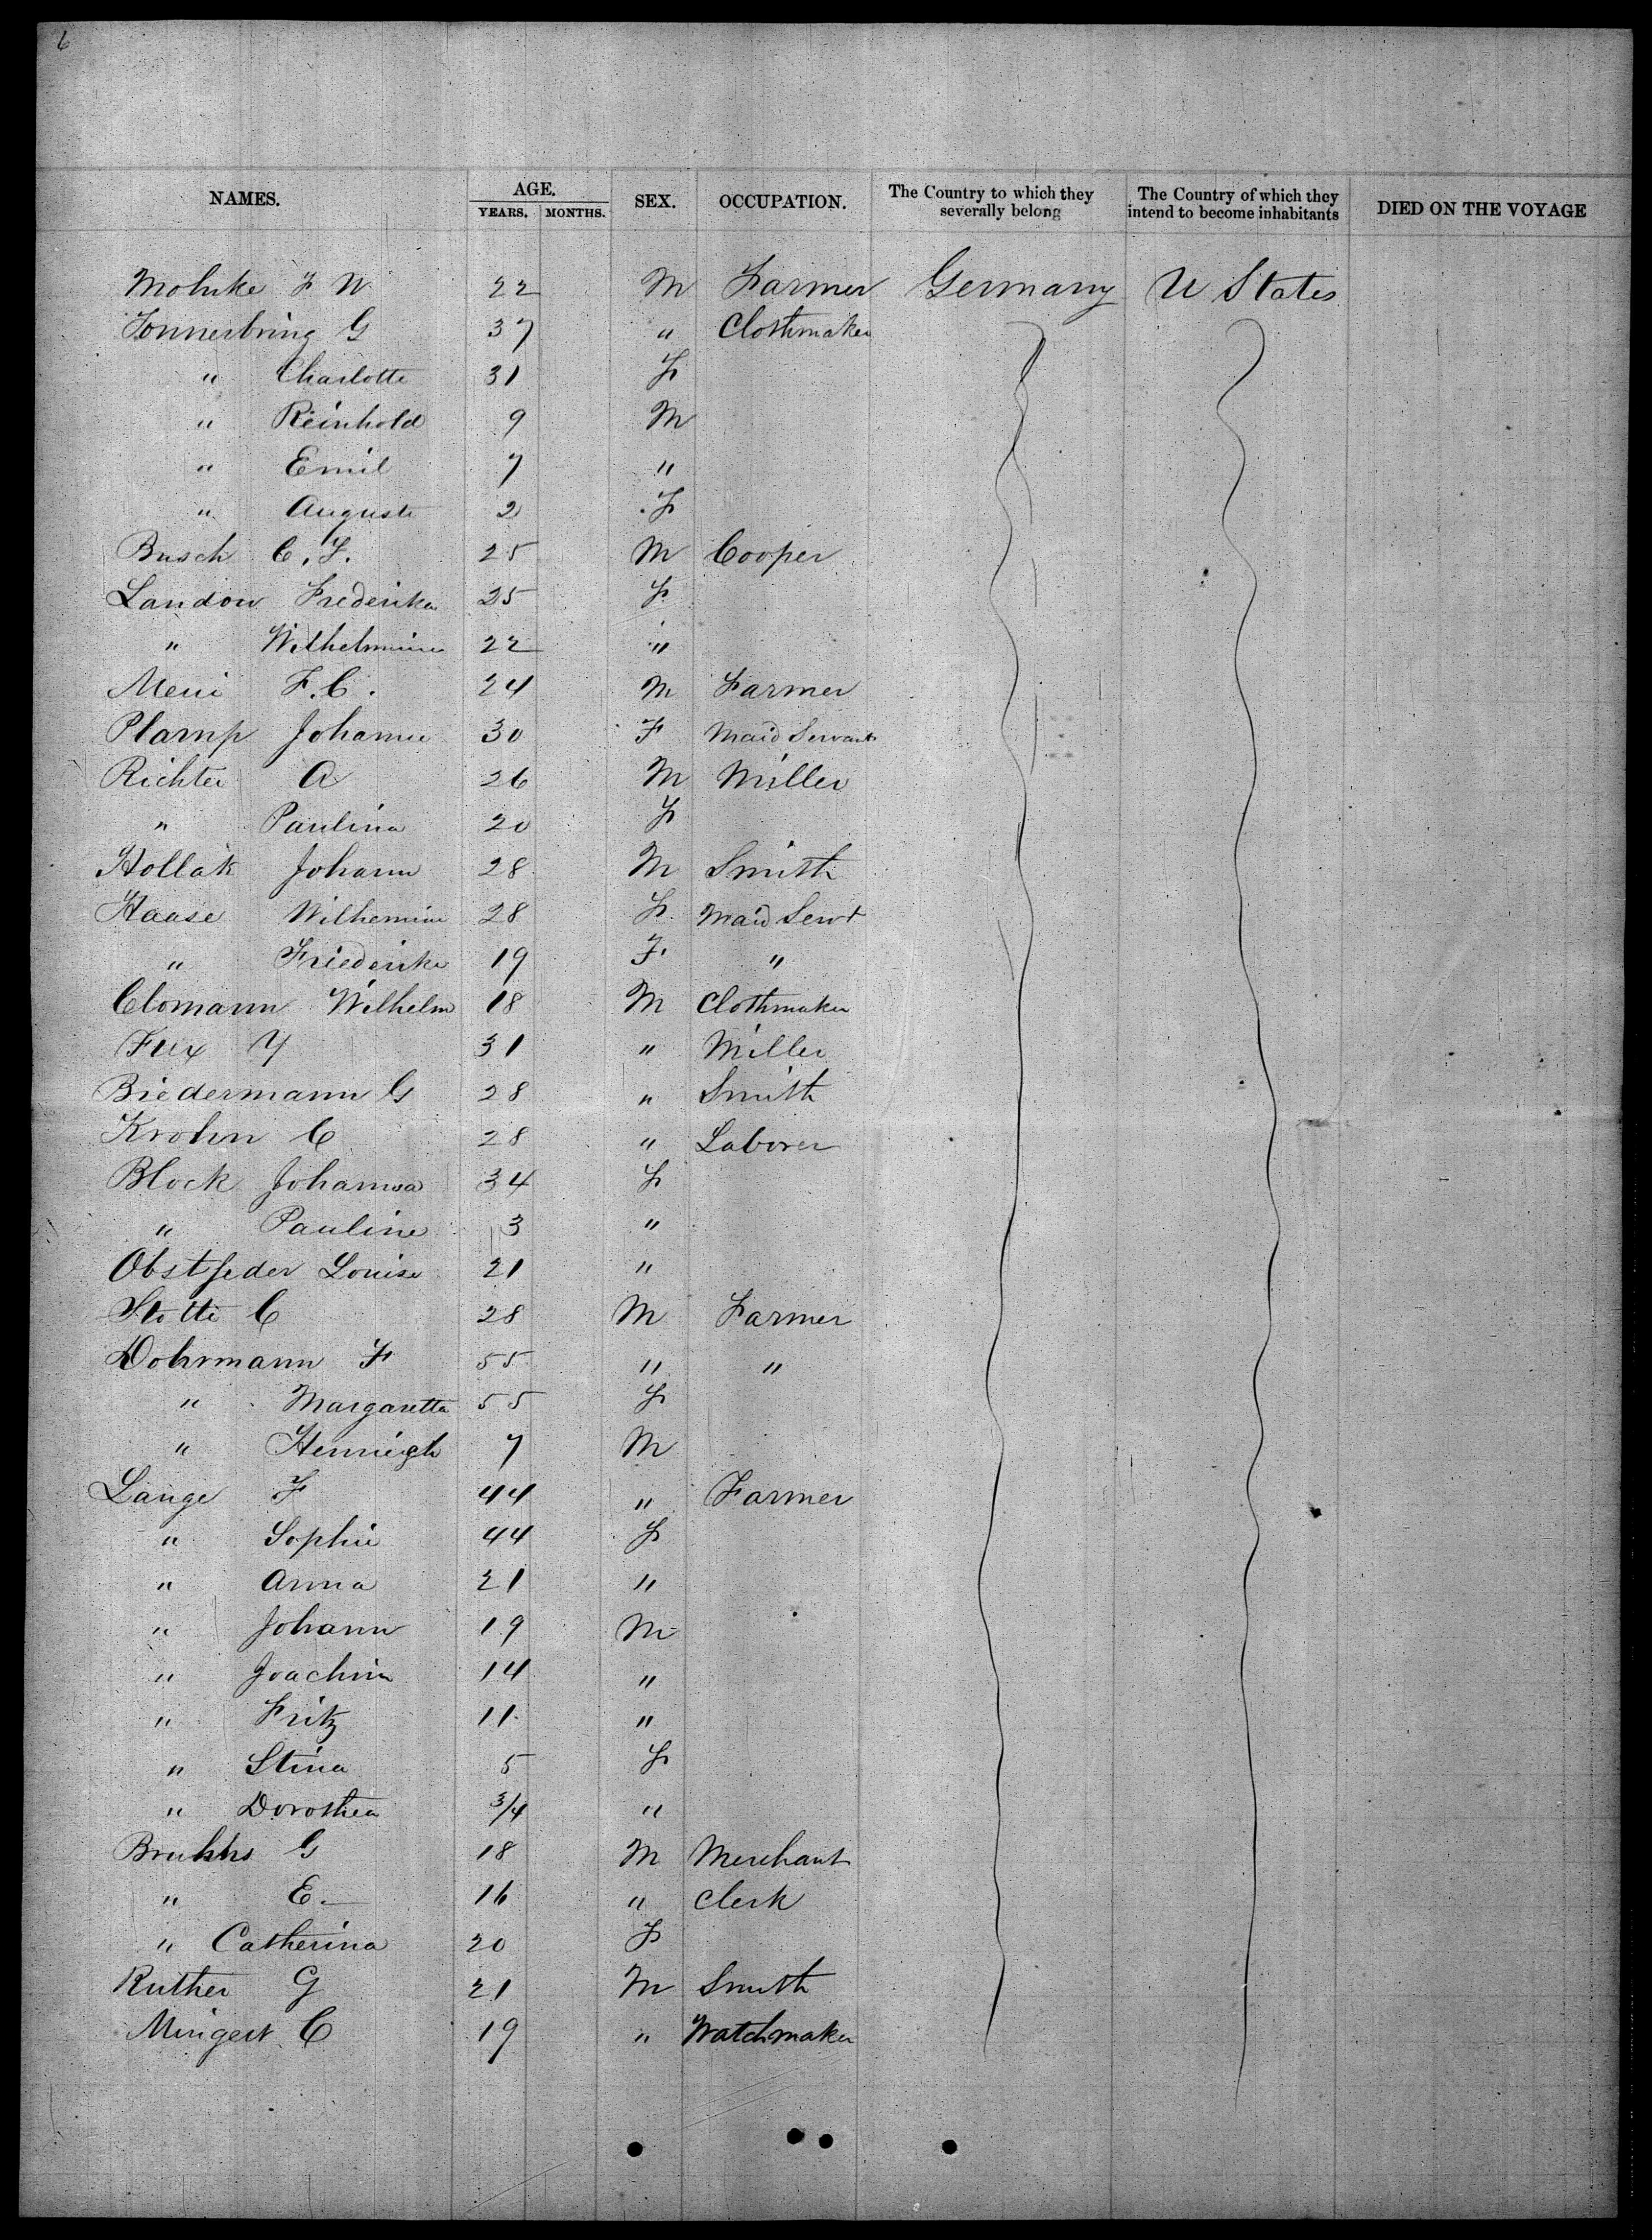 6
NAMES. AGE. YEARS. MONTHS. SEX. OCCUPATION. The Country to which they severally belong The Country of which they intend to become inhabitants DIED ON THE VOYAGE
Mohnke F W 22 M Farmer Germany U States
Sonnerbring G 37 " Clothmaker
" Charlotte 31 F
" Reinhold 9 M
" Emil 7 "
" Auguste 2 F
Busch C. F. 25 M Cooper
Landow Frederika 25 F
" Wilhelmine 22 "
F. C. 24 M Farmer
Plamp Johanne 30 F Maid Servant
Richter A 26 M Miller
" Paulina 20 F
Hollak Johann 28 M Smith
Haase Wilhemine 28 F Maid Servt
" Friederike 19 F "
Clomann Wilhelm 18 M Clothmaker
Fux Y 31 " Miller
Biedermann G 28 " Smith
Krohn C 28 " Laborer
Block Johanna 34 F
" Pauline 3 "
Obstfeder Louise 21 "
Stotte C 28 M Farmer
Dohrmann F 55 " "
" Margaretta 55 F
" 7 M
Lange F 44 " Farmer
" Sophie 44 F
" Anna 21 "
" Johann 19 M
" Joachim 14 "
" Fritz 11 "
" Stina 5 F
" Dorothea 3/4 "
G 18 M Merchant
" E. 16 " Clerk
" Catherina 20 F
Ruther G 21 M Smith
C 19 " Watchmaker